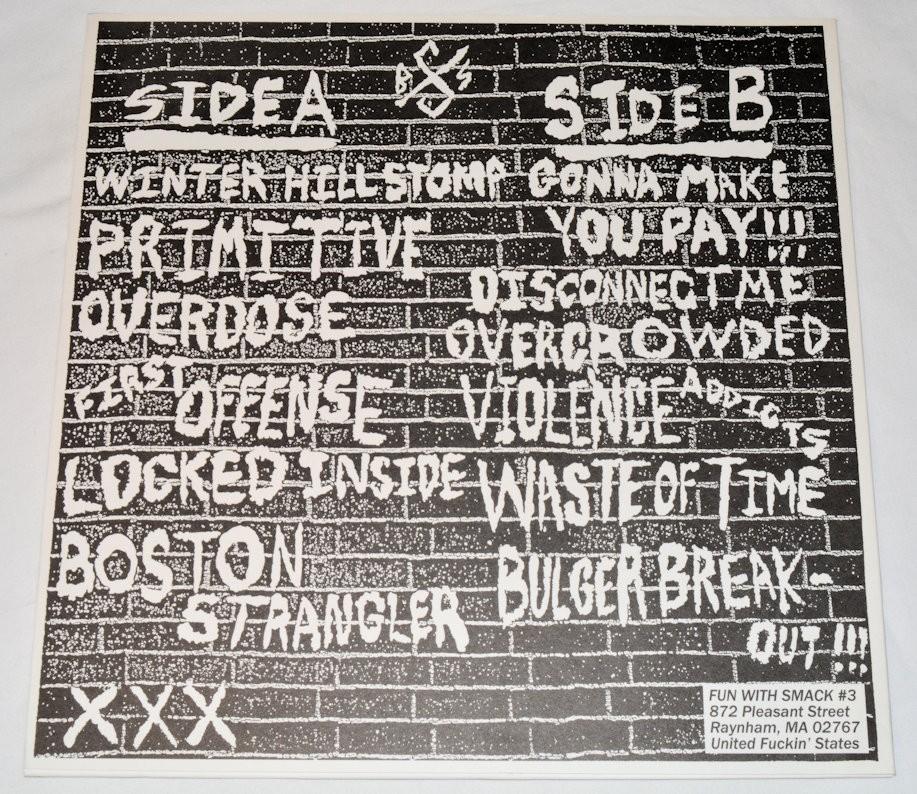 B S
SIDE A
WINTER HILL STOMP
PRIMITIVE
OVERDOSE
FIRST OFFENSE
LOCKED INSIDE
BOSTON
STRANGLER
XXX
SIDE B
GONNA MAKE
YOU PAY!!!
DISCONNECT ME
OVERCROWDED
VIOLENCE ADDICTS
WASTE OF TIME
BULGER BREAK-
OUT!!!
FUN WITH SMACK #3
872 Pleasant Street
Raynham, MA 02767
United Fuckin' States